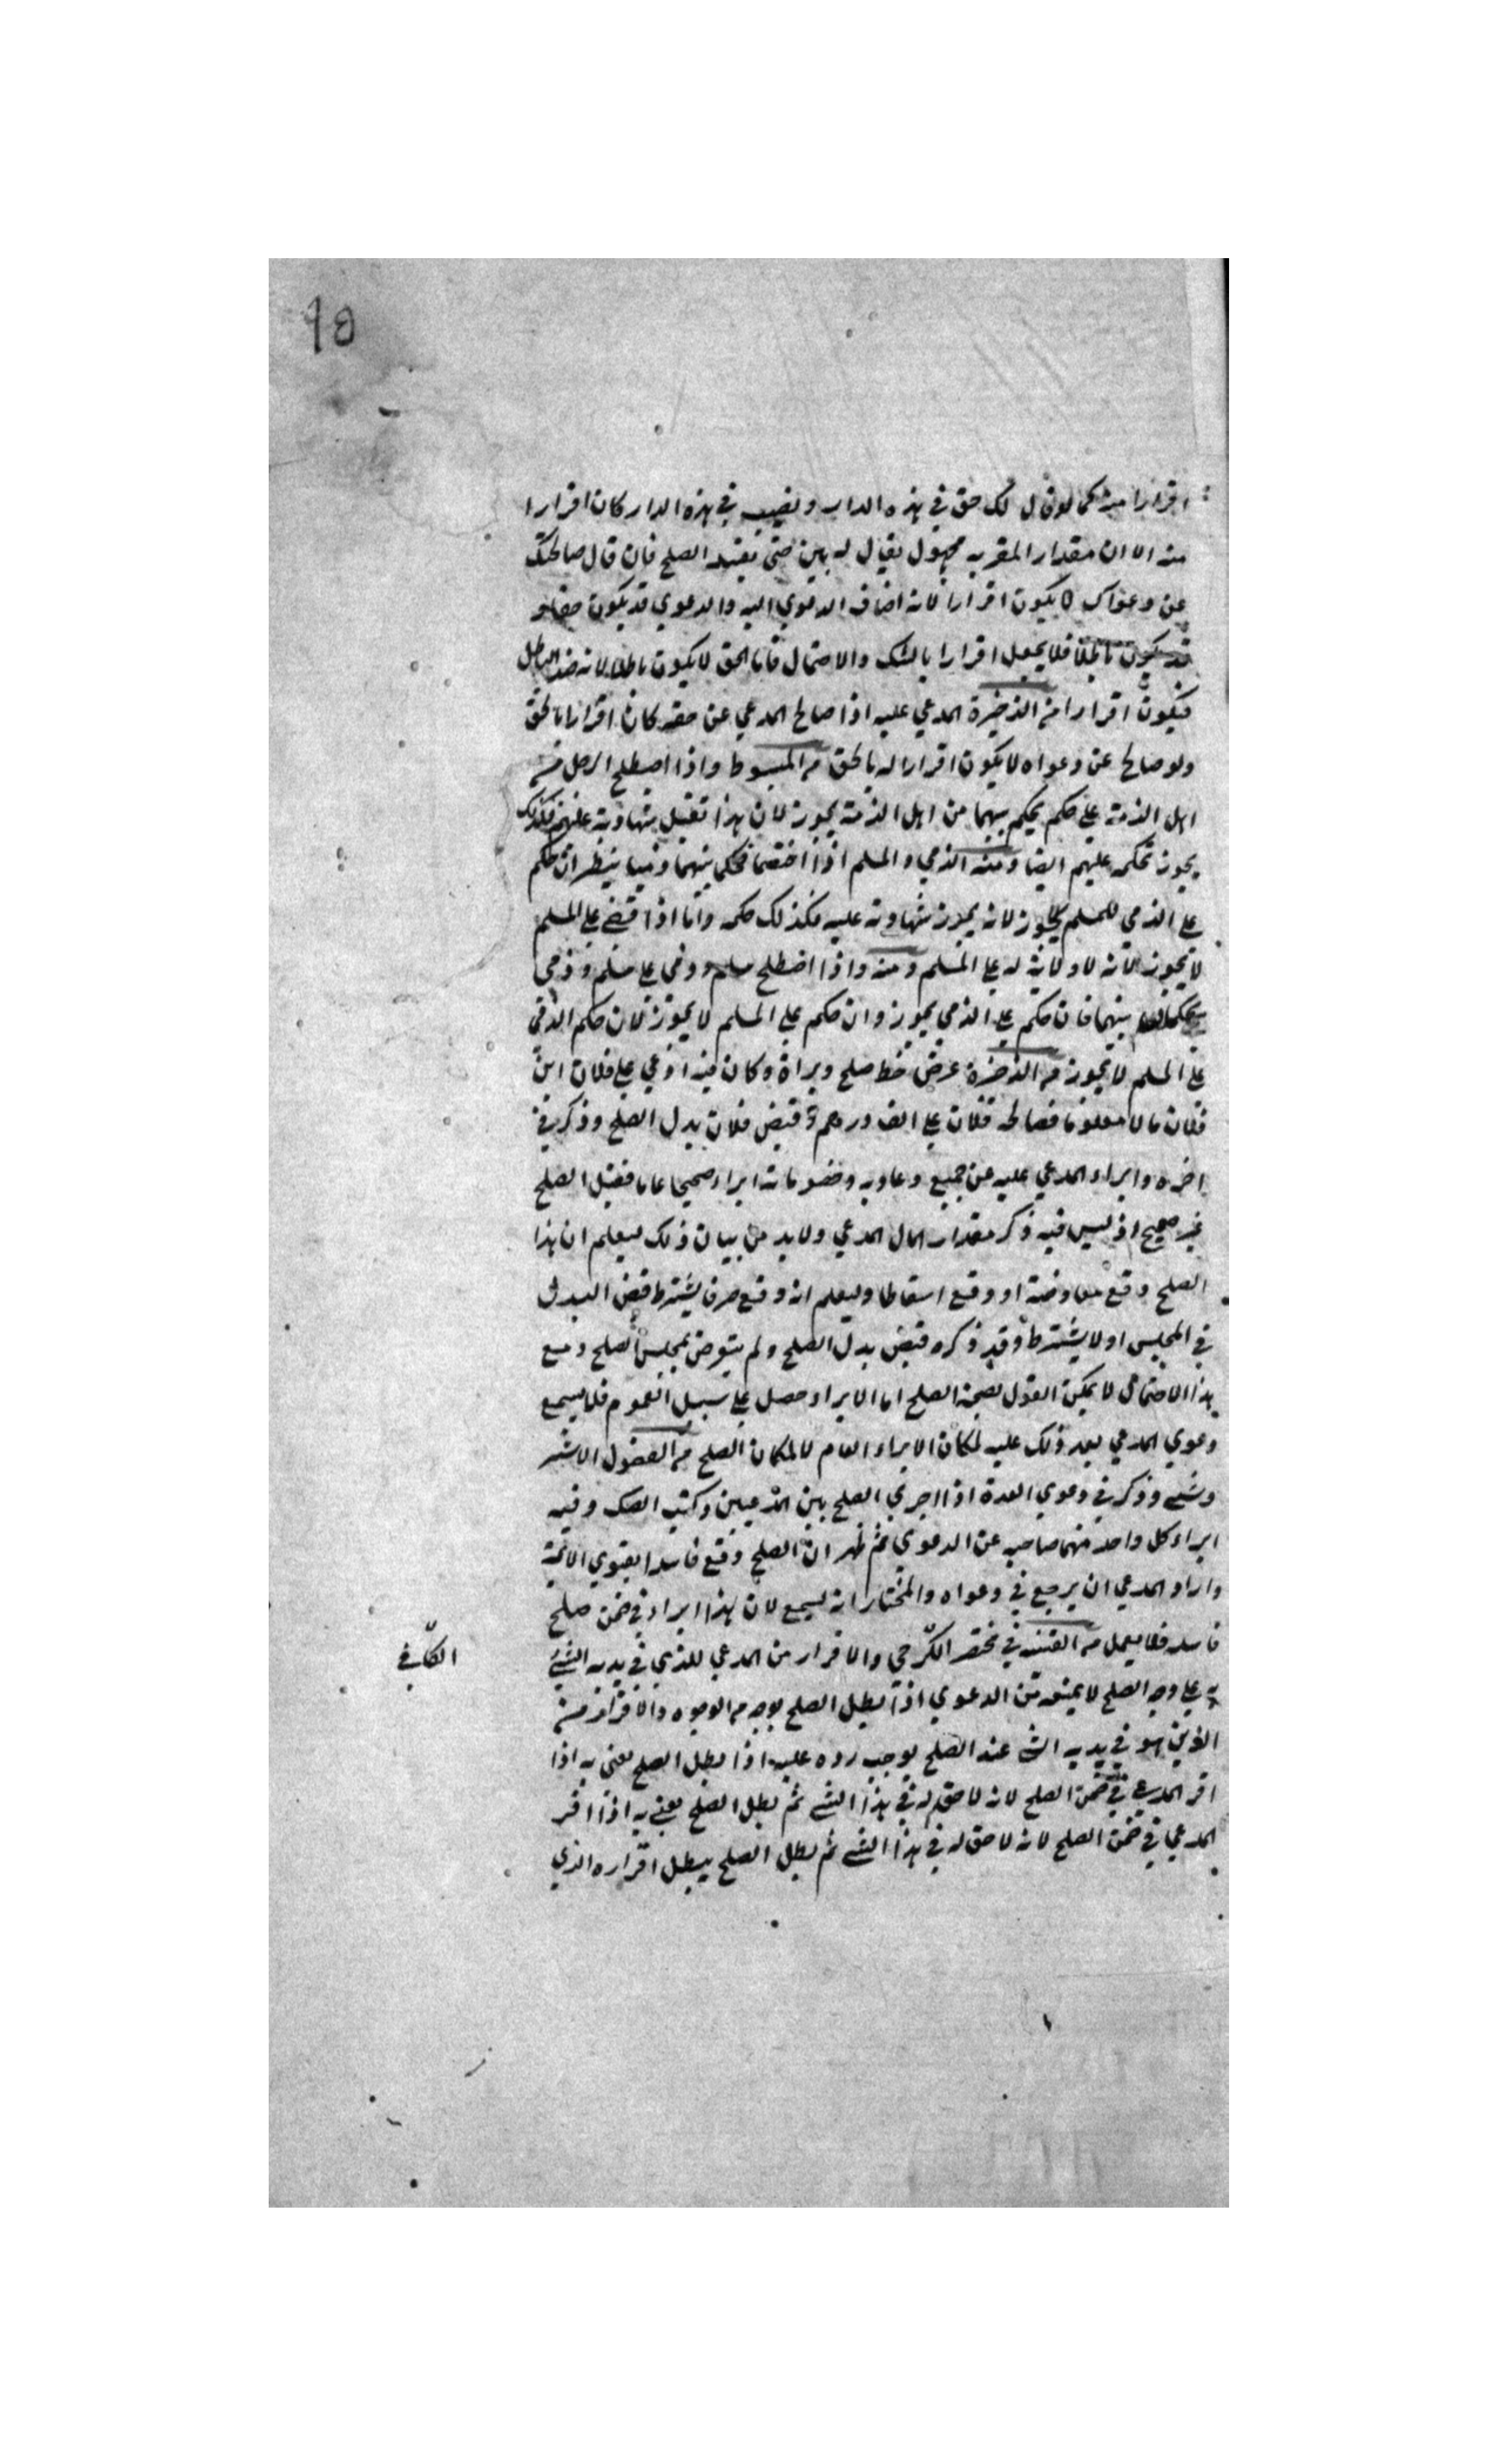 ٩٥
اقرارا منه كما لو قال لك حق في هذه الدار ونصيب في هذه الدار كان اقرارا
منه الا ان مقدار المقر به مجهول يقال له بين حتى يفيد الصلح فان قال صالحتك
عن دعواك لا يكون اقرارا لانه اضاف الدعوي اليه والدعوي قد يكون حقا و
قد يكون باطلا فلا يجعل اقرارا بالشك والاحتمال فاما الحق لا يكون باطلا لانه ضد الباطل
فيكون اقرارا من الذخيرة المدعي عليه اذا صالح المدعي عن حقه كان اقرارا بالحق
ولو صالح عن دعواه لا يكون اقرارا له بالحق من المبسوط واذا اصطلح الرجل من
اهل الذمة علي حكم يحكم بينهما من اهل الذمة يجوز لان هذا تقبل شهادته عليهم فكذلك
يجوز تحكمه عليهم ايضا ومنه الذمي والمسلم اذا اختصما فحكما بينهما ذميا ينظر ان حكم
علي الذمي للمسلم يجوز لانه يجوز شهادته عليه فكذلك حكمه واما اذا قضي علي المسلم
لا يجوز لانه لا ولاية له علي المسلم ومنه واذا اصطلح مسلم وذمي علي مسلم وذمي
بينهما فان حكم علي الذمي يجوز وان حكم علي المسلم لا يجوز لان حكم الذمي
علي المسلم لا يجوز من الذخيرة عرض خط صلح وبراة وكان فيه ادعي علي فلان ابن
فلان مالا معلوما فصالحه فلان علي الف درهم وقبض فلان بدل الصلح وذكر في
اخره وابراء المدعي عليه عن جميع دعاويه وخصوماته ابراء صحيحا عاما فقيل الصلح
غير صحيح اذ ليس فيه ذكر مقدار المال المدعي ولابد من بيان ذلك ليعلم ان هذا
الصلح وقع معاوضة او وقع اسقاطا وليعلم انه وقع صرفا يشترط قبض البدل
في المجلس او لا يشترط وقد ذكره قبض بدل الصلح ولم يتعرض لمجلس الصلح ومع
هذا الاحتمال لا يمكن القول بصحة الصلح اما الابراء حصل علي سبيل العموم فلا يسمع
دعوي المدعي بعد ذلك عليه لمكان الابراء العام لا لمكان الصلح من الفصول الاشتر
وشني وذكر في دعوي العدة اذا اجري الصلح بين المدعيين وكتب الصك وفيه
ابراء كل واحد منهما صاحبه عن الدعوي ثم ظهر ان الصلح وقع فاسدا بفتوي الائمة
واراد المدعي ان يرجع في دعواه والمختار انه يسمع لان هذا ابراء في ضمن صلح
فاسد فلا يعمل من القنية في مختصر الكرخي والاقرار من المدعي للذي في يديه الشئ
علي وجه الصلح لا يمنعه من الدعوي اذا بطل الصلح بوجه من الوجوه والاقرار من
الذين هو في يديه الشئ عند الصلح يوجب رده عليه اذا بطل الصلح يعني به اذا
اقر المدعي في ضمن الصلح لانه لا حق له في هذا الشئ ثم بطل الصلح يعني به اذا اقر
المدعي في ضمن الصلح لانه لا حق له في هذا الشئ ثم بطل الصلح يبطل اقراره الذي